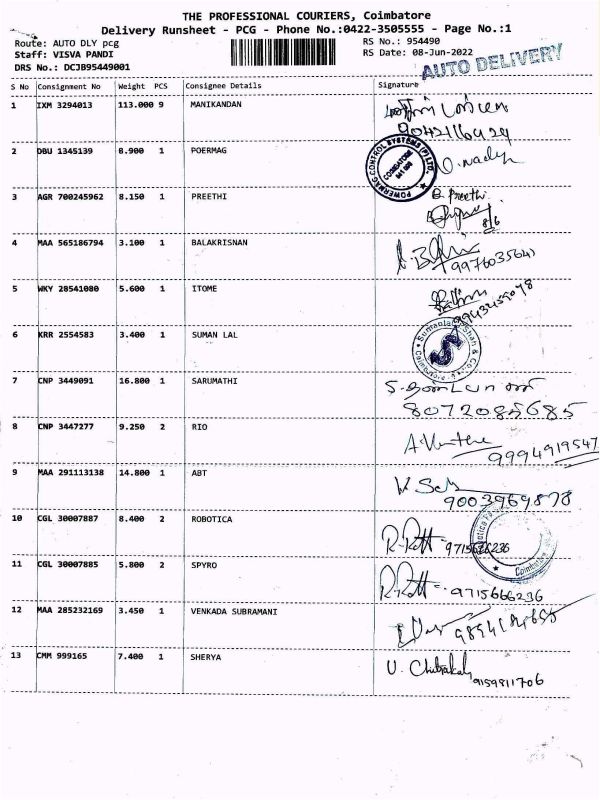 THE PROFESSIONAL COURIERS, Coimbatore
Delivery Runsheet - PCG - Phone No.:0422-3505555 - Page No.:1
Route: AUTO DLY pcg
RS No.: 954490
Staff: VISVA PANDI
RS Date: 08-Jun-2022
DRS No.: DCJB95449001
AUTO DELIVERY
S No Consignment No Weight PCS Consignee Details Signature
1 IXM 3294013 113.000 9 MANIKANDAN
2 DBU 1345139 8.900 1 POERMAG
POWERMAG CONTROL SYSTEMS (P) LTD, COIMBATORE
3 AGR 700245962 8.150 1 PREETHI B. Preethi
8/6
4 MAA 565186794 3.100 1 BALAKRISNAN
9976035641
5 WKY 28541080 5.600 1 ITOME
6 KRR 2554583 3.400 1 SUMAN LAL
7 CNP 3449091 16.800 1 SARUMATHI
8072085685
8 CNP 3447277 9.250 2 RIO
9994919547
9 MAA 291113138 14.800 1 ABT
9003969878
10 CGL 30007887 8.400 2 ROBOTICA
Coimbatore
11 CGL 30007885 5.800 2 SPYRO
9715666236
12 MAA 285232169 3.450 1 VENKADA SUBRAMANI
13 CMM 999165 7.400 1 SHERYA
9159811706